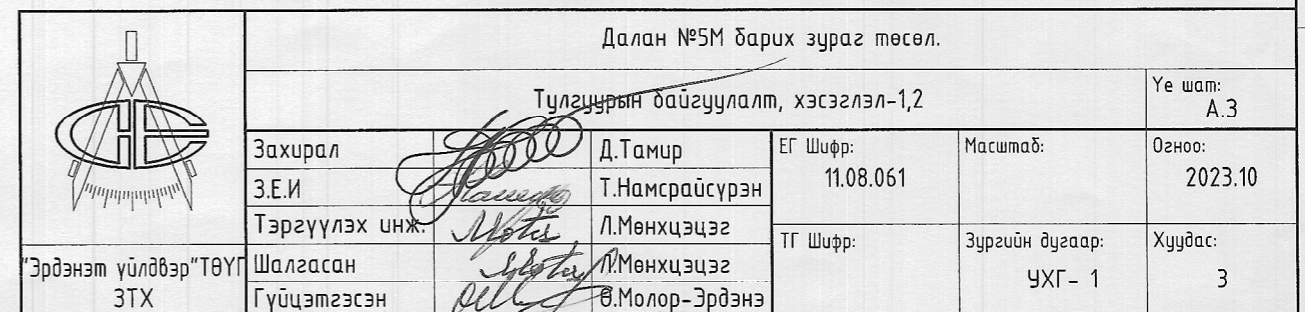 Далан №5М барих зураг төсөл.
Тулгуурын байгуулалт, хэсэглэл-1,2
Үе шат:
А.З
Захирал Д.Тамир
З.Е.И Т.Намсрайсүрэн
Тэргүүлэх инж. Л.Мөнхцэцэг
Шалгасан Л.Мөнхцэцэг
Гүйцэтгэсэн Ө.Молор-Эрдэнэ
ЕГ Шифр:
11.08.061
Масштаб:
Огноо:
2023.10
ТГ Шифр:
Зургийн дугаар:
УХГ- 1
Хуудас:
3
"Эрдэнэт үйлдвэр"ТӨҮГ
ЗТХ